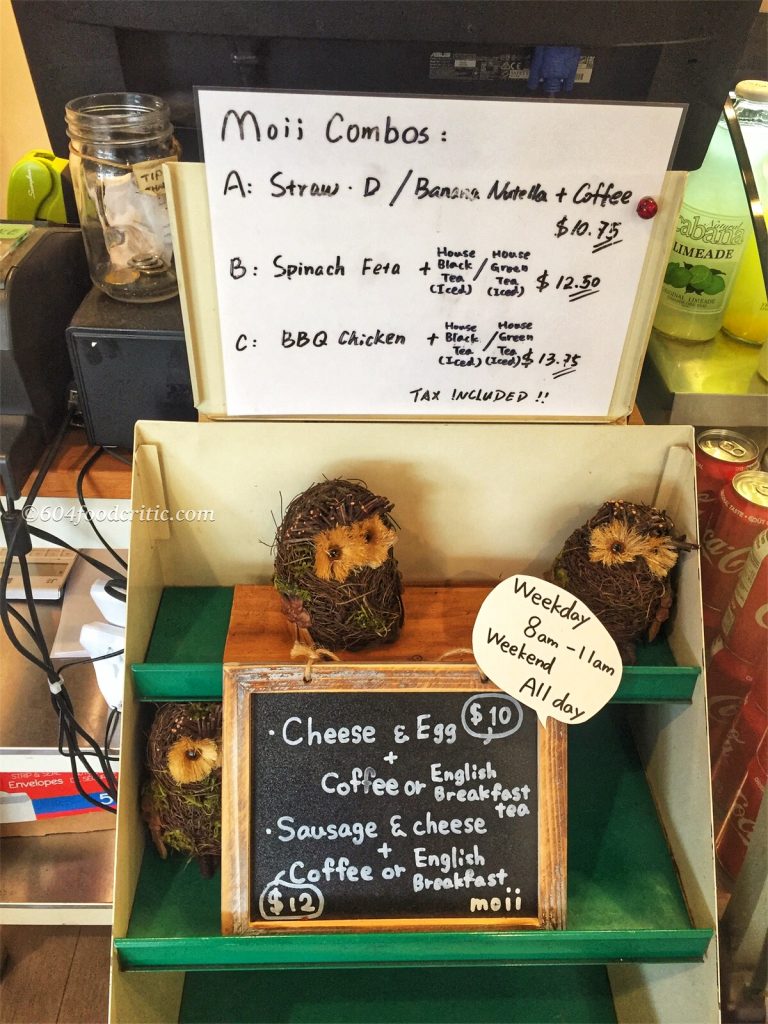 ASUS
Moii Combos:
A: Straw. D / Banana Nutella + Coffee
$10.75
B: Spinach Feta + House Black Tea (Iced) / House Green Tea (Iced) $12.50
C: BBQ Chicken + House Black Tea (Iced) / House Green Tea (Iced) $13.75
TAX INCLUDED !!
TIP
LIMEADE
ORIGINAL LIMEADE
©604foodcritic.com
Weekday
8am - 11am
Weekend
All day
· Cheese & Egg $10
+
Coffee or English Breakfast tea
· Sausage & cheese
+
Coffee or English Breakfast
$12
moii
STRIP & SEAL
Envelopes
5